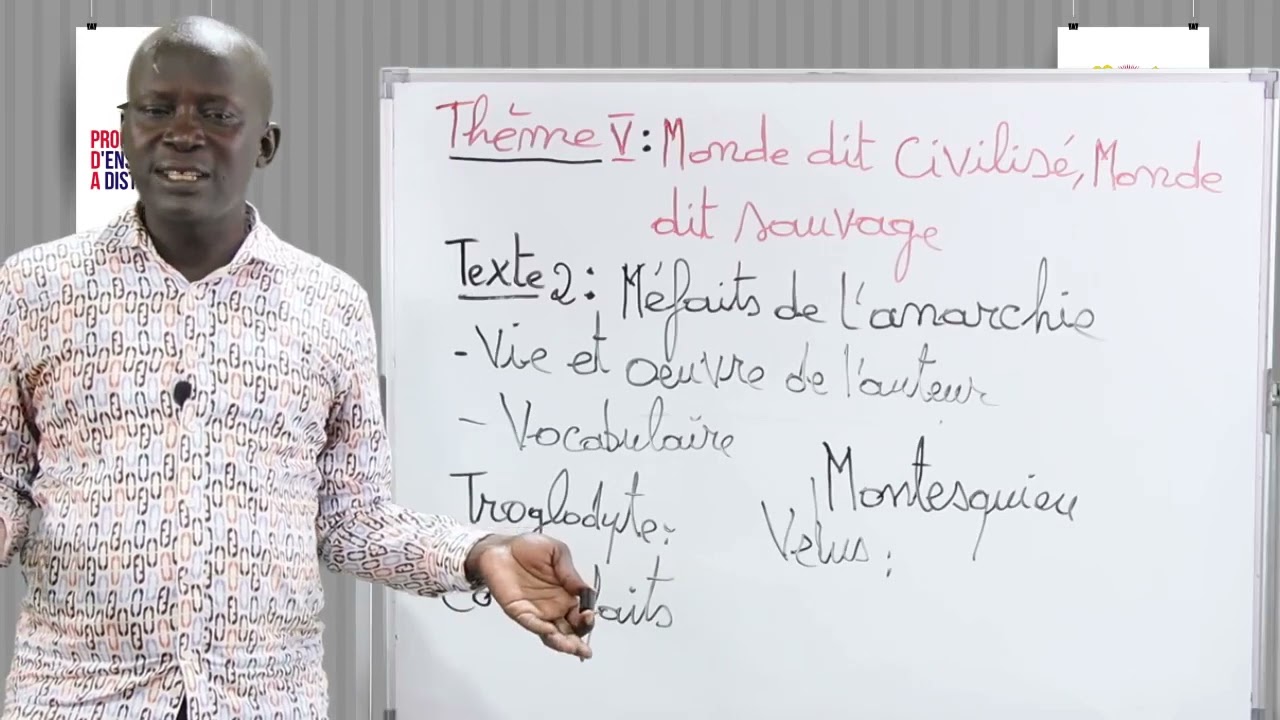 PRO
D'ENS
A DIST
Thème V : Monde dit Civilisé, Monde
dit sauvage
Texte 2 : Méfaits de l'anarchie
- Vie et oeuvre de l'auteur
- Vocabulaire
Montesquieu
Troglodyte :
Velus :
Co faits